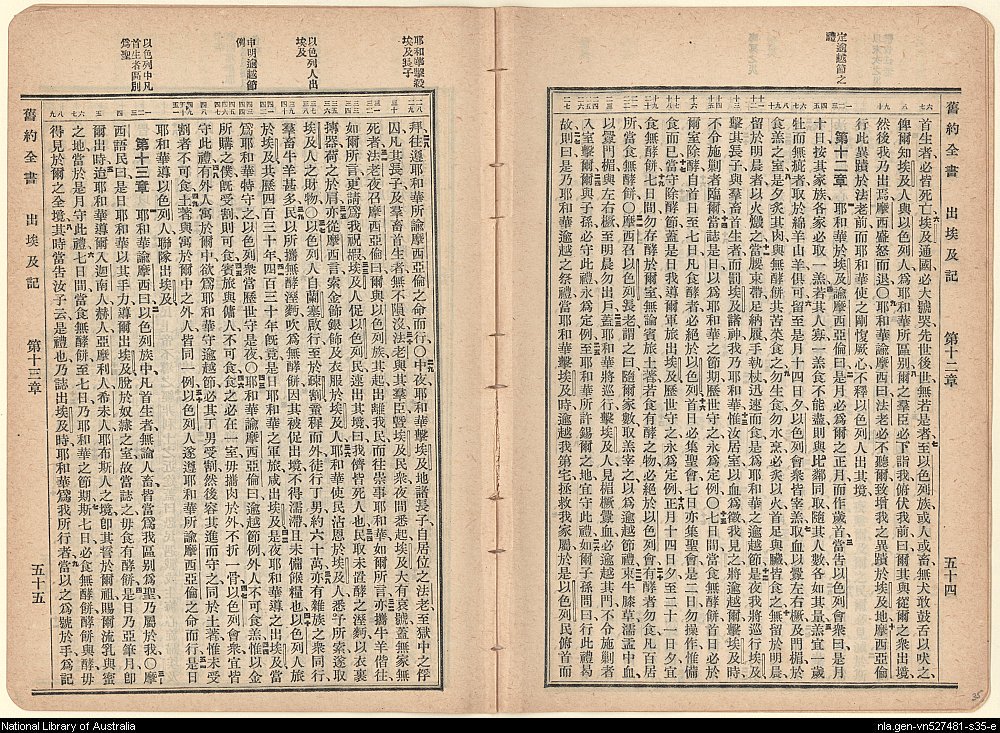 舊約全書 出埃及記 第十二章 五十四
定逾越節之
禮
首生者必皆死亡埃及通國必大號哭先世後世無若是者至以色列族或人或畜無犬敢鼓舌以吠之
俾爾知埃及人與以色列人爲耶和華所區別爾之羣臣必下詣我俯伏我前曰爾其與從爾之衆出境
然後我乃出焉摩西盛怒而退○耶和華諭摩西曰法老必不聽爾致增我之異蹟於埃及地摩西亞倫
行此異蹟於法老前而耶和華使之剛愎厥心不釋以色列人出其境
第十二章 耶和華於埃及諭摩西亞倫曰是月必爲爾之正月而作歲首當告以色列會衆曰是月
十日按其家族各家必取一羔若其人寡一羔食不能盡則與比鄰同取隨其人數各如其量羔宜一歲
牡而無疵者取於綿羊山羊俱可留至是月十四日夕以色列會衆皆宰羔取血以釁左右橛及門楣於
食羔之室是夕炙其肉與無酵餅共苦菜食之勿生食勿水烹必炙以火首足與臟皆食之無留於明晨
留於明晨者以火燬之當腰束帶足納履手執杖迅速而食是爲耶和華之逾越節是夜我將巡行埃及
擊其長子與羣畜首生者而罰埃及諸神我乃耶和華惟汝居室以血爲徵我見之將逾越爾擊埃及時
不令施剿者臨爾當誌是日以爲耶和華之節期歷世守之永爲定例○七日間當食無酵餅首日必於
爾室除酵自首日至七日凡食酵者必絕於以色列首日必集聖會七日亦集聖會是二日勿操作惟備
食而已當守除酵節蓋是日我導爾軍旅出埃及歷世守之永爲定例正月十四日夕至二十一日夕宜
食無酵餅七日間勿存酵於爾室無論賓旅土著若食有酵之物必絕於以色列會有酵者勿食凡百居
所當食無酵餅○摩西召以色列長老謂之曰隨爾家數取羔宰之以爲逾越節禮束牛膝草濡盂中血
以釁門楣與左右橛至明晨勿出戶蓋耶和華將巡行擊埃及人見楣橛釁血必逾越其門不令施剿者
入室擊爾爾與子孫必守此禮永爲定例至耶和華所許錫爾之地宜守此禮如爾子孫問曰行此禮曷
故則曰是乃耶和華逾越之祭禮當耶和華擊埃及時逾越我第宅拯救我家屬於是以色列民俯首而
舊約全書 出埃及記 第十三章 五十五
耶和華擊殺
埃及長子
以色列人出
埃及
申明逾越節
例
以色列中凡
首生者區別
爲聖
拜往遵耶和華所諭摩西亞倫之命而行○中夜耶和華擊埃及地諸長子自居位之法老至獄中之俘
囚凡其長子及羣畜首生者無不隕沒法老與其羣臣暨埃及民衆夜間悉起埃及大有哀號蓋無家無
死者法老夜召摩西亞倫曰爾與以色列族其起出離我民而往崇事耶和華如爾所言亦攜牛羊偕往
如爾所言更請爲我祝嘏埃及人促以色列民速出其境曰我儕皆死人也民取未酵之溲麪以衣裹
摶器荷之於肩亦從摩西言索金飾銀飾及衣服於埃及人耶和華使民沾恩於埃及人悉予所索遂取
埃及人之財物○以色列人自蘭塞歐行至於疎割童稺而外徒行丁男約六十萬亦有雜族之衆同行
羣畜牛羊甚多民以所攜無酵溲麪炊爲無酵餅因其被促出境不得濡滯且未備餱糧也以色列人旅
於埃及共歷四百三十年四百三十年旣竟是日耶和華之軍旅咸出埃及是夜耶和華導之出埃及當
爲耶和華特守之以色列衆當歷世守是夜○耶和華諭摩西亞倫曰逾越節例外人不可食羔惟以金
所購之僕旣受割則可食賓旅與傭人不可食食之必在一室毋攜肉於外不折一骨以色列會衆宜皆
守此禮有外人寓於爾中欲爲耶和華守逾越節必其丁男受割然後容其進而守之同於土著惟未受
割者不可食土著與寓於爾中之外人皆同一例以色列人遂遵耶和華所諭摩西亞倫之命而行是日
耶和華導以色列人聯隊出埃及
第十三章 耶和華諭摩西曰以色列族中凡首生者無論人畜皆當爲我區別爲聖乃屬於我○摩
西語民曰是日耶和華以其手力導爾出埃及脫於奴隸之室故當誌之毋食有酵餅是日乃亞筆月卽
爾出時迨耶和華導爾入迦南人赫人亞摩利人希未人耶布斯人之境卽其誓於爾祖賜爾流乳與蜜
之地當於是月守此禮七日間當食無酵餅至七日乃耶和華之節期斯七日必食無酵餅酵餅與酵毋
得見於爾之全境其時當告汝子云是禮也乃誌出埃及時耶和華爲我所行者當以之爲號於手爲記
35
National Library of Australia
nla.gen-vn527481-s35-e